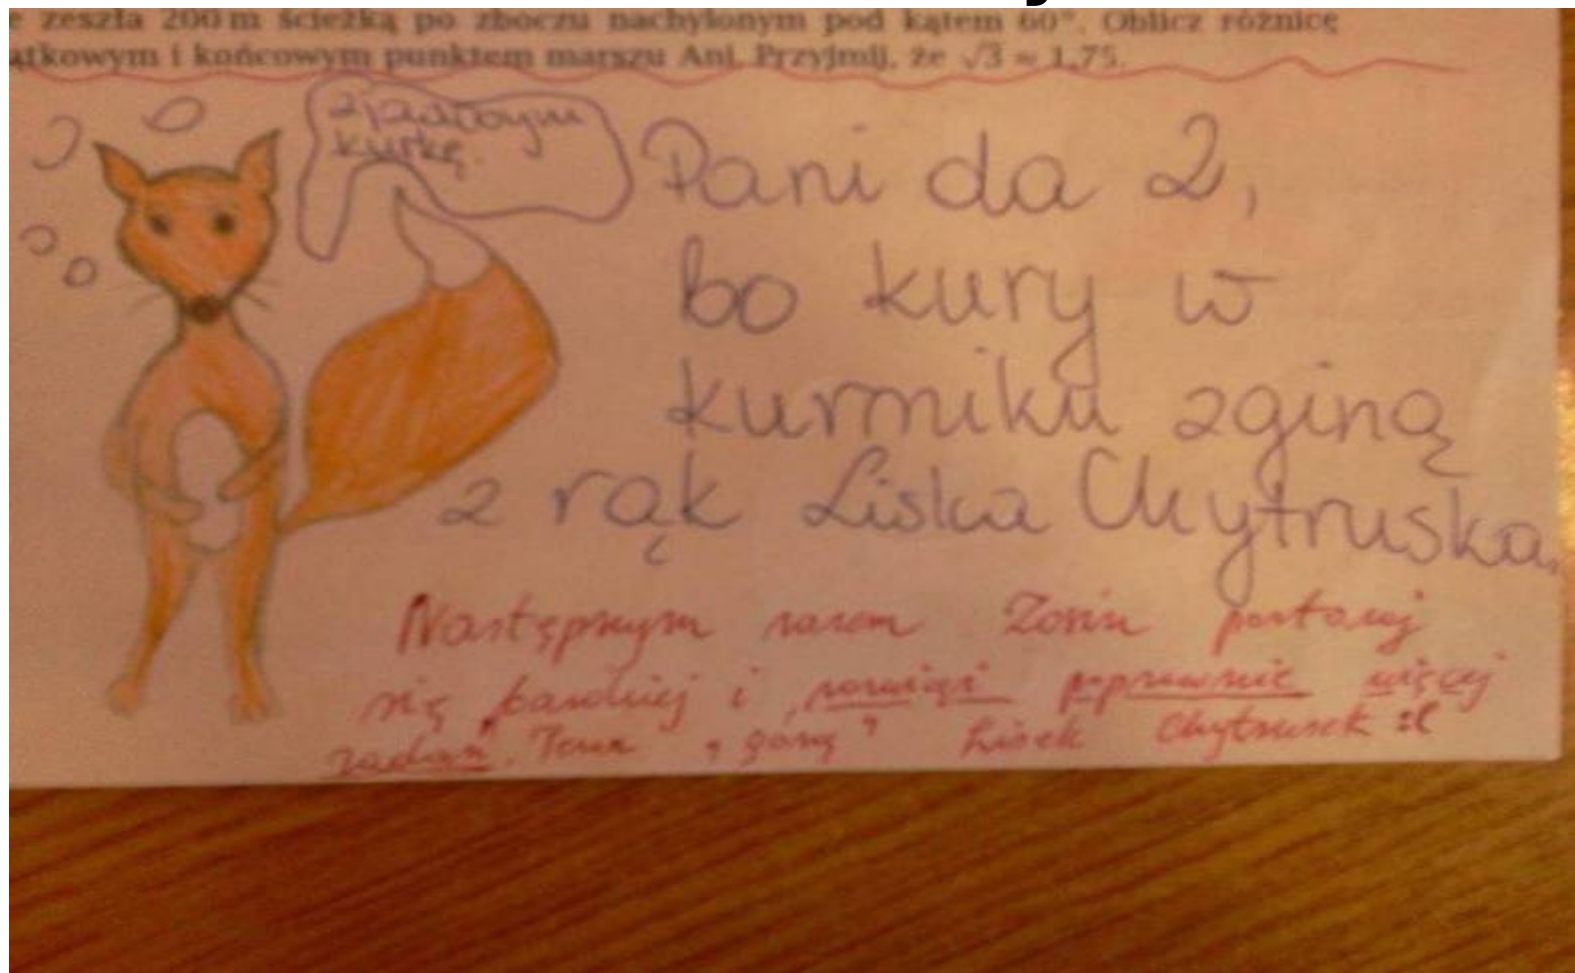 e zeszła 200 m ścieżką po zboczu nachylonym pod kątem 60°. Oblicz różnicę
ątkowym i końcowym punktem marszu Ani. Przyjmij, że √3 ≈ 1,75.
zjadłbym
kurkę.
Pani da 2,
bo kury w
kurniku zginą
z rąk Liska Chytruska.
Następnym razem Zosiu postaraj
się bardziej i rozwiąż poprawnie więcej
zadań. Teraz "górą" Lisek Chytrusek :(